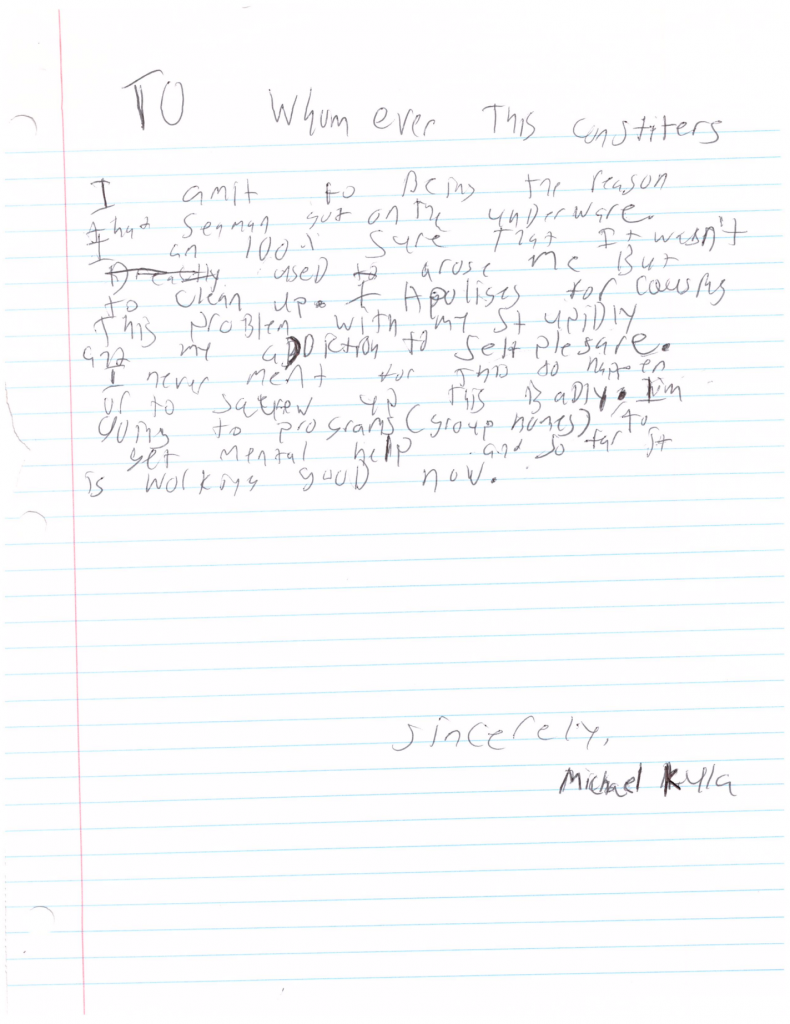 TO Whom ever This constiters
I amit to Being the reason
that Seaman gut on the underware.
I am 100% sure that It wasn't
used to arose me But
to clean up. I Apolises for cousing
This problem with my stupidly
and my aDDiction to self plesare.
I never ment for this to happen
or to sacrew up this BaDly. Iim
going to programs (group homes) to
get mental help and so far it
is workiys gooD now.
sincerely,
Michael Kylla